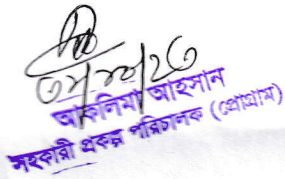 আকলিমা আহসান
সহকারী প্রকল্প পরিচালক (প্রোগ্রাম)